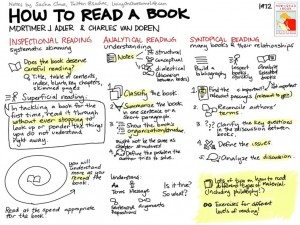 Notes by Sacha Chua, Twitter @sachac, LivingAnAwesomeLife.com
#192
HOW TO READ A BOOK
MORTIMER J. ADLER & CHARLES VAN DOREN
INSPECTIONAL READING
systematic skimming
Does the book deserve careful reading?
Title, table of contents,
index, blurb, key chapters,
skimmed pages
Superficial reading
In tackling a book for the
first time, read it through
without ever stopping to
look up or ponder the things
you do not understand
right away.
you will
understand
more as you
reread the
Read at the speed appropriate
for the book.
ANALYTICAL READING
understanding
Notes
structural
conceptual
dialectical
(discussion
between books)
Classify the book.
Summarize the book
in one sentence or
short paragraph.
Show the book's
organization
might not be the same as
Define the problem
the author tries to solve.
Understand
Aa Terms
Message
Sentences
Arguments
Is it true?
So what?
SYNTOPICAL READING
many books & their relationships
Build a
bibliography
Inspect
books
Analyze
books
Find the important
passages
Reconcile authors'
terms
Clarify the key questions
in the discussion between
books.
Define the issues
Analyze the discussion
Lots of tips on how to read
different types of material
(including philosophy!)
Exercises for different
levels of reading!